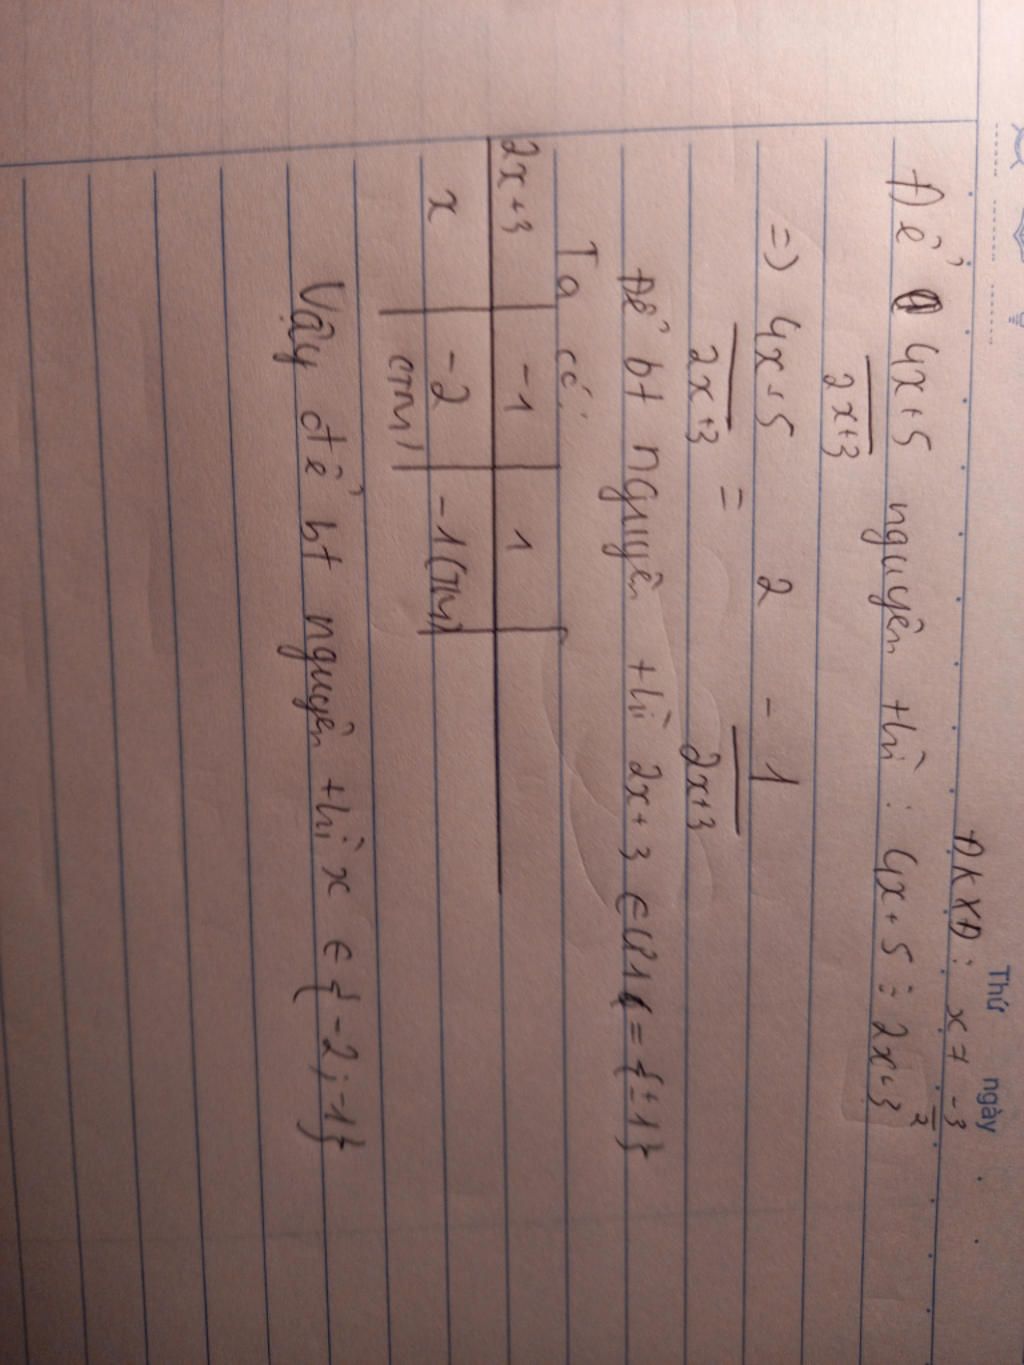 Thứ ngày
ĐKXĐ: x ≠ -3/2
Để 4x+5/2x+3 nguyên thì: 4x+5 ⋮ 2x+3
=> 4x+5/2x+3 = 2 - 1/2x+3
Để bt nguyên thì 2x+3 ∈ Ư(1) = {±1}
Ta có:
2x+3 -1 1
x -2 (TM) -1 (TM)
Vậy để bt nguyên thì x ∈ {-2; -1}